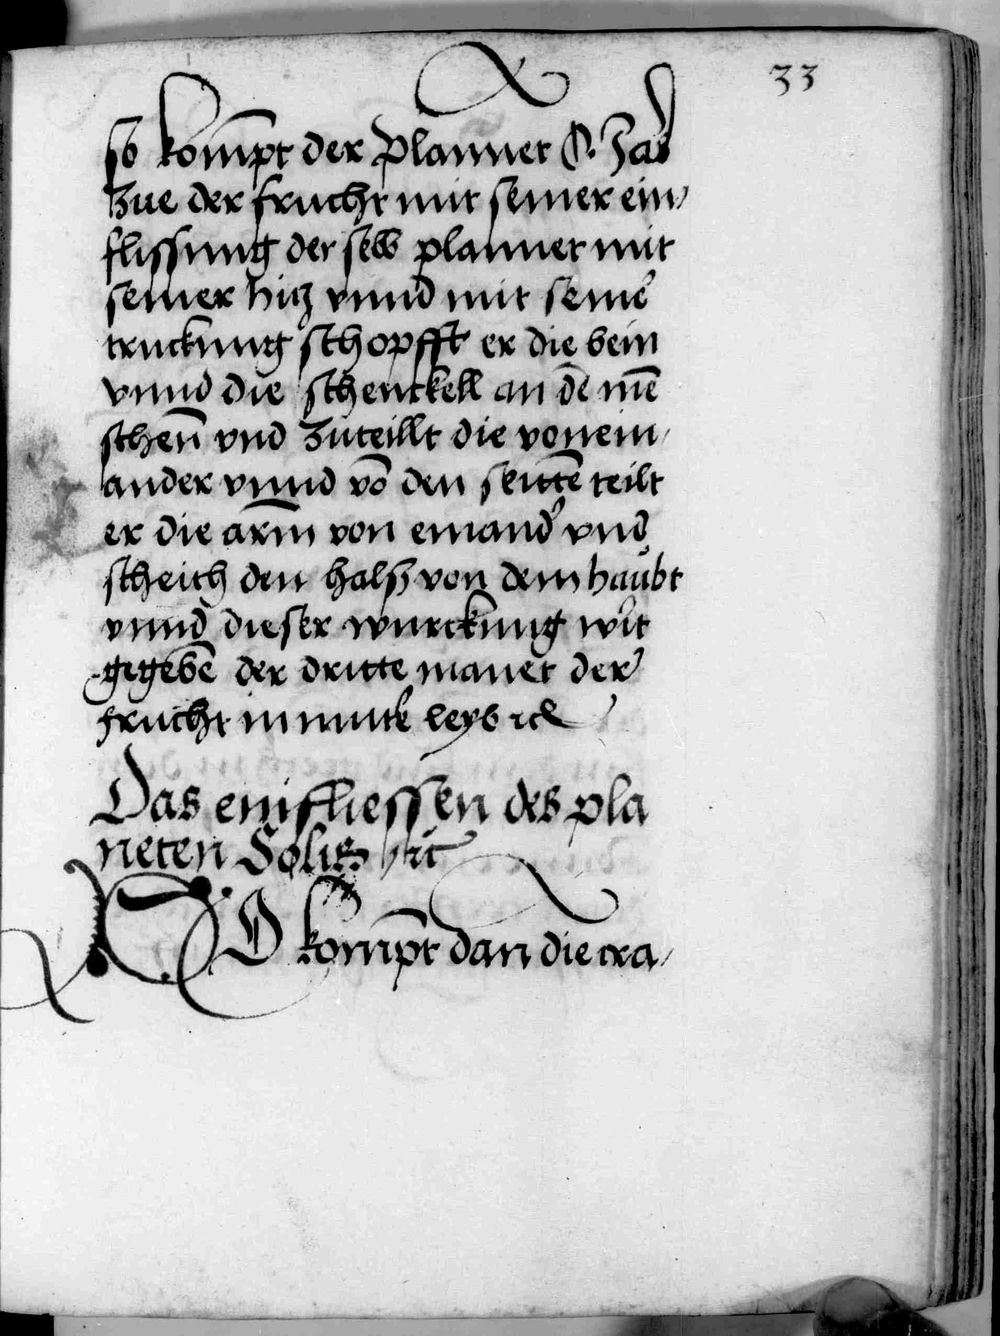 33
so kompt der plannet O. Zart
zue der frucht mit seiner ein,
flissung der selb plannet mit
seiner hitz vnnd mit seine͛
truckung schopfft er die bein
vnnd die schenckell an dē mē
schen̄ vnd zuteillt die vonein,
ander vnnd vō den seittē teilt
er die arm̄ von einand͛ vnd
scheith den halß von dem haubt
vnnd dieser wurckung wirt
gegebē der dritte manet der
frucht in mutt͛ leyb ꝛc
Das einfliessen des pla
neten Solis hit
SO kompt dan die cra,